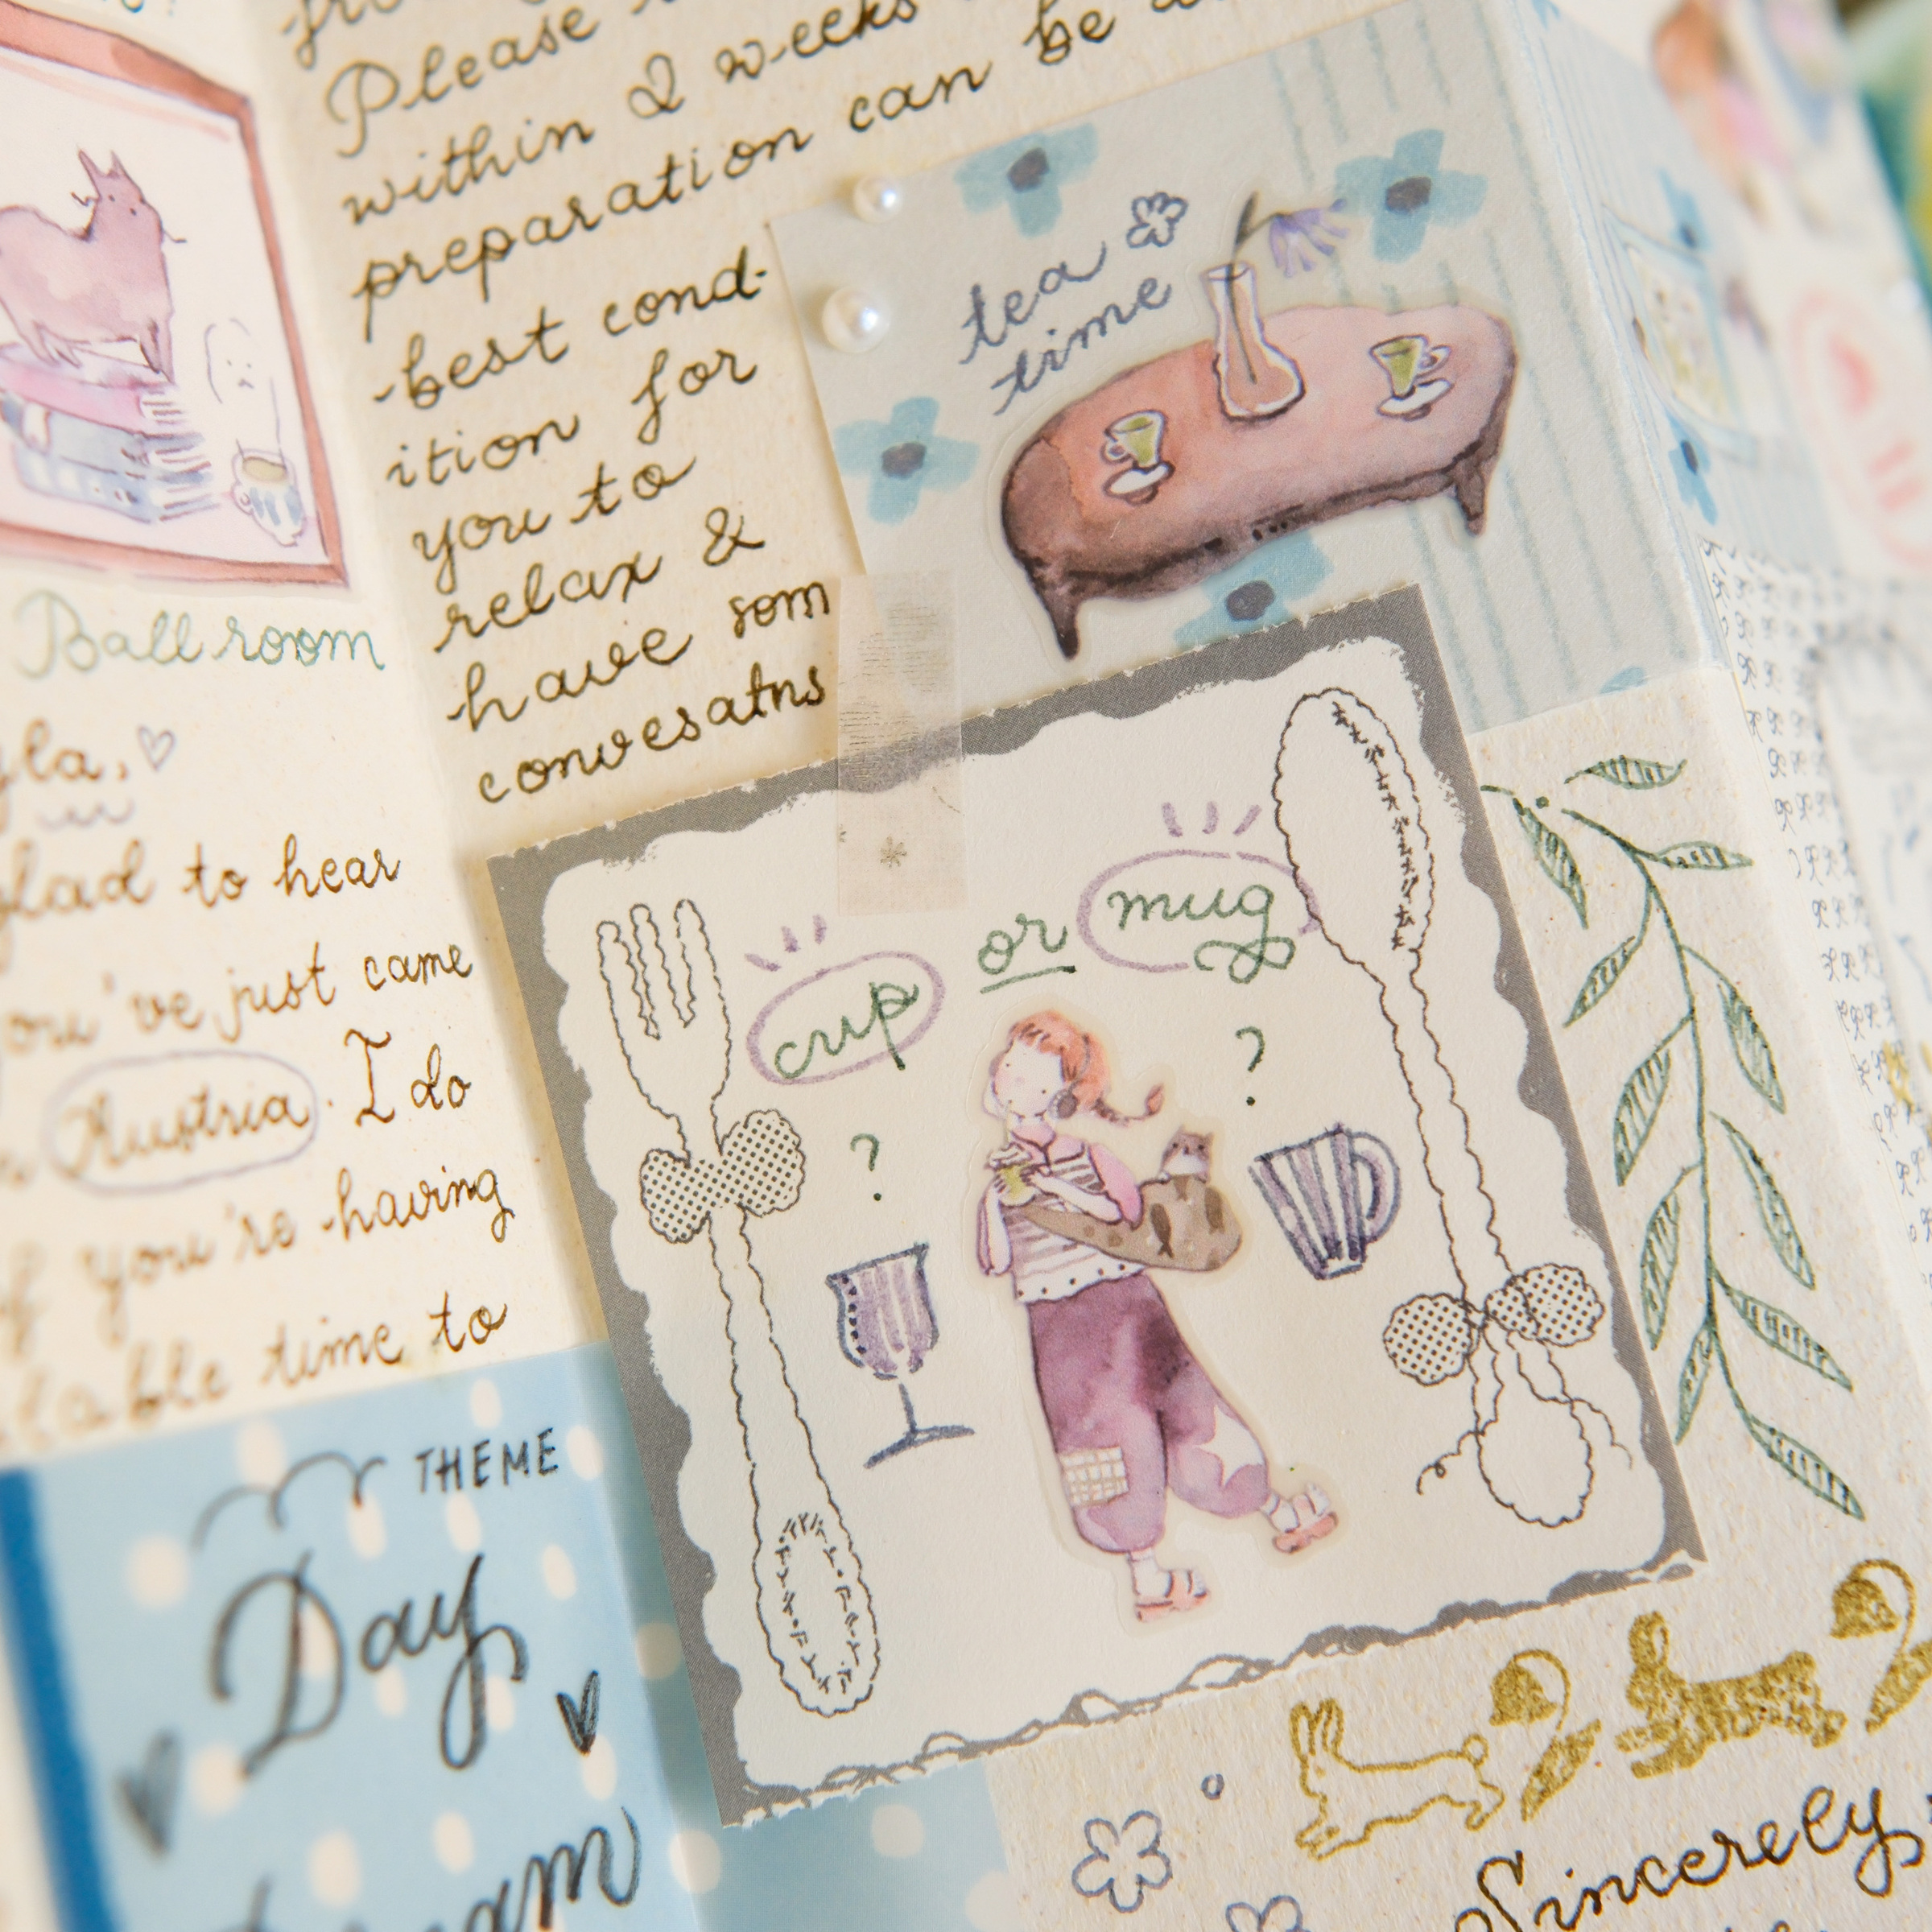 Please
within 2 weeks
preparation can be
best cond-
ition for
you to
relax &
have som
convesatns
tea
time
Ballroom
glad to hear
you've just came
Austria. I do
if you're having
time to
cup or mug
? ?
THEME
Day
Sincerely